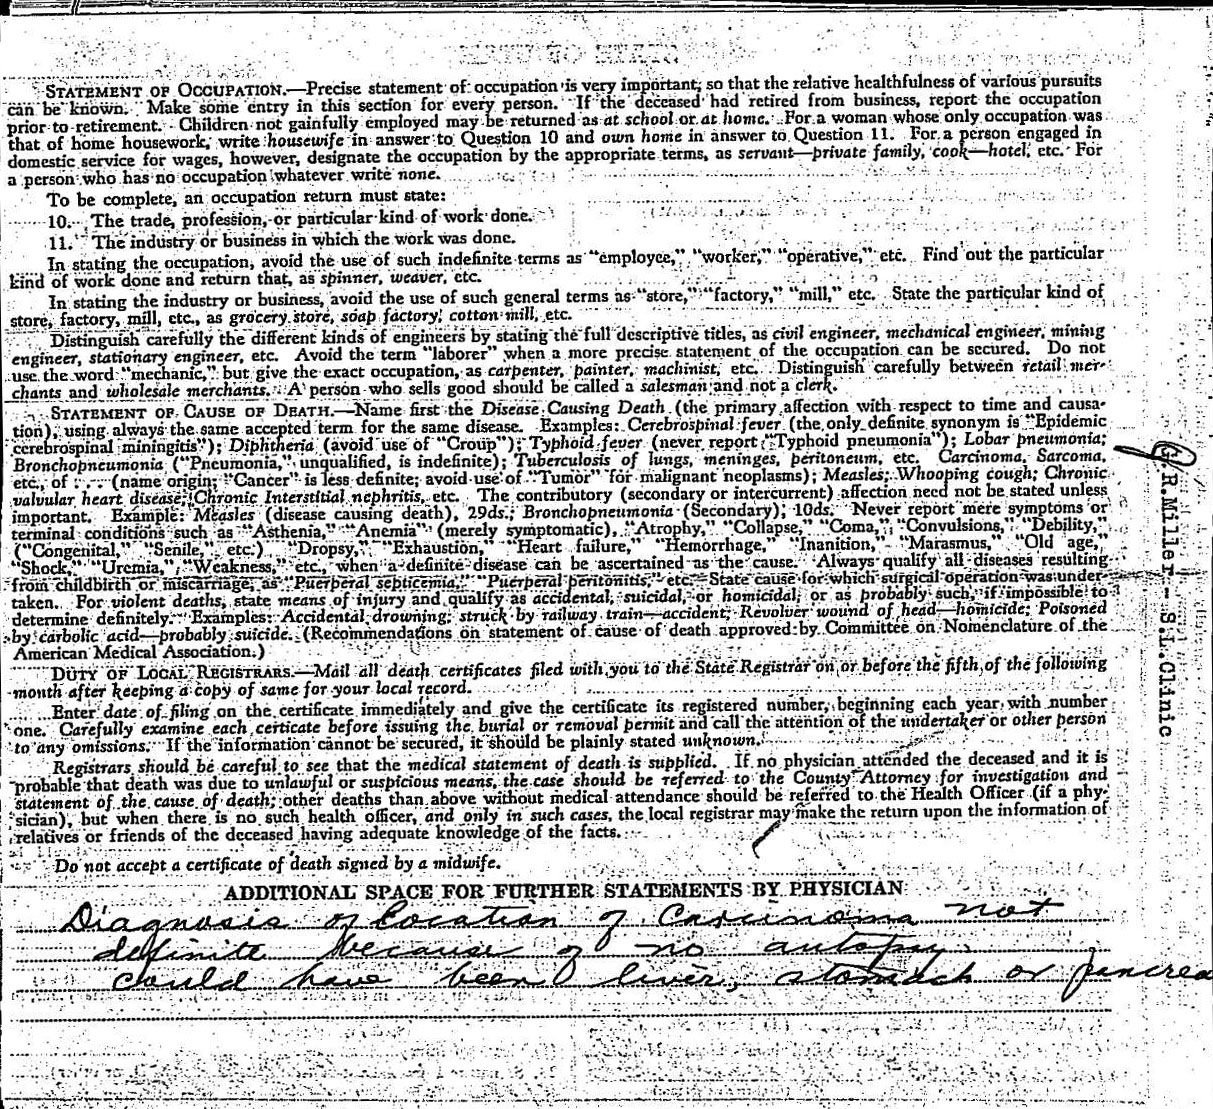 STATEMENT OF OCCUPATION.—Precise statement of occupation is very important, so that the relative healthfulness of various pursuits
can be known. Make some entry in this section for every person. If the deceased had retired from business, report the occupation
prior to retirement. Children not gainfully employed may be returned as at school or at home. For a woman whose only occupation was
that of home housework, write housewife in answer to Question 10 and own home in answer to Question 11. For a person engaged in
domestic service for wages, however, designate the occupation by the appropriate terms, as servant—private family, cook—hotel, etc. For
a person who has no occupation whatever write none.
To be complete, an occupation return must state:
10. The trade, profession, or particular kind of work done.
11. The industry or business in which the work was done.
In stating the occupation, avoid the use of such indefinite terms as "employee," "worker," "operative," etc. Find out the particular
kind of work done and return that, as spinner, weaver, etc.
In stating the industry or business, avoid the use of such general terms as "store," "factory," "mill," etc. State the particular kind of
store, factory, mill, etc., as grocery store, soap factory, cotton mill, etc.
Distinguish carefully the different kinds of engineers by stating the full descriptive titles, as civil engineer, mechanical engineer, mining
engineer, stationary engineer, etc. Avoid the term "laborer" when a more precise statement of the occupation can be secured. Do not
use the word "mechanic," but give the exact occupation, as carpenter, painter, machinist, etc. Distinguish carefully between retail mer-
chants and wholesale merchants. A person who sells good should be called a salesman and not a clerk.
STATEMENT OF CAUSE OF DEATH.—Name first the Disease Causing Death (the primary affection with respect to time and causa-
tion), using always the same accepted term for the same disease. Examples: Cerebrospinal fever (the only definite synonym is "Epidemic
cerebrospinal miningitis"); Diphtheria (avoid use of "Croup"); Typhoid fever (never report "Typhoid pneumonia"); Lobar pneumonia;
Bronchopneumonia ("Pneumonia," unqualified, is indefinite); Tuberculosis of lungs, meninges, peritoneum, etc. Carcinoma, Sarcoma,
etc., of . . . (name origin; "Cancer" is less definite; avoid use of "Tumor" for malignant neoplasms); Measles; Whooping cough; Chronic
valvular heart disease; Chronic Interstitial nephritis, etc. The contributory (secondary or intercurrent) affection need not be stated unless
important. Example: Measles (disease causing death), 29ds.; Bronchopneumonia (Secondary); 10ds. Never report mere symptoms or
terminal conditions such as "Asthenia," "Anemia" (merely symptomatic), "Atrophy," "Collapse," "Coma," "Convulsions," "Debility,"
("Congenital," "Senile," etc.) "Dropsy," "Exhaustion," "Heart failure," "Hemorrhage," "Inanition," "Marasmus," "Old age,"
"Shock," "Uremia," "Weakness," etc., when a definite disease can be ascertained as the cause. Always qualify all diseases resulting
from childbirth or miscarriage, as "Puerperal septicemia," "Puerperal peritonitis," etc. State cause for which surgical operation was under-
taken. For violent deaths, state means of injury and qualify as accidental, suicidal, or homicidal, or as probably such, if impossible to
determine definitely. Examples: Accidental drowning; struck by railway train—accident; Revolver wound of head—homicide; Poisoned
by carbolic acid—probably suicide. (Recommendations on statement of cause of death approved by Committee on Nomenclature of the
American Medical Association.)
DUTY OF LOCAL REGISTRARS.—Mail all death certificates filed with you to the State Registrar on or before the fifth of the following
month after keeping a copy of same for your local record.
Enter date of filing on the certificate immediately and give the certificate its registered number, beginning each year with number
one. Carefully examine each certicate before issuing the burial or removal permit and call the attention of the undertaker or other person
to any omissions. If the information cannot be secured, it should be plainly stated unknown.
Registrars should be careful to see that the medical statement of death is supplied. If no physician attended the deceased and it is
probable that death was due to unlawful or suspicious means, the case should be referred to the County Attorney for investigation and
statement of the cause of death; other deaths than above without medical attendance should be referred to the Health Officer (if a phy-
sician), but when there is no such health officer, and only in such cases, the local registrar may make the return upon the information of
relatives or friends of the deceased having adequate knowledge of the facts.
Do not accept a certificate of death signed by a midwife.
ADDITIONAL SPACE FOR FURTHER STATEMENTS BY PHYSICIAN
Diagnosis of location of Carcinoma not
definite because of no autopsy.
could have been liver, stomach or pancrea
R.Miller - S.L.Clinic